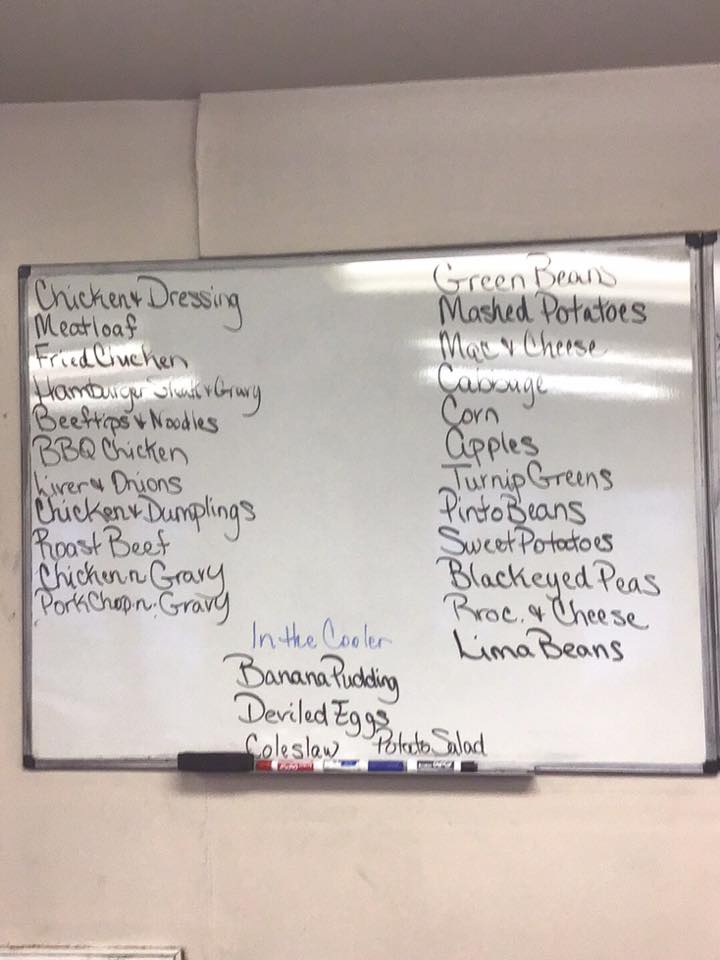 Chicken & Dressing
Meatloaf
Fried Chicken
Hamburger Steak & Gravy
Beeftips & Noodles
BBQ Chicken
Liver & Onions
Chicken & Dumplings
Roast Beef
Chicken n Gravy
PorkChop n. Gravy
Green Beans
Mashed Potatoes
Mac & Cheese
Cabbage
Corn
Apples
Turnip Greens
Pinto Beans
Sweet Potatoes
Blackeyed Peas
Broc. & Cheese
Lima Beans
In the Cooler
Banana Pudding
Deviled Eggs
Coleslaw Potato Salad